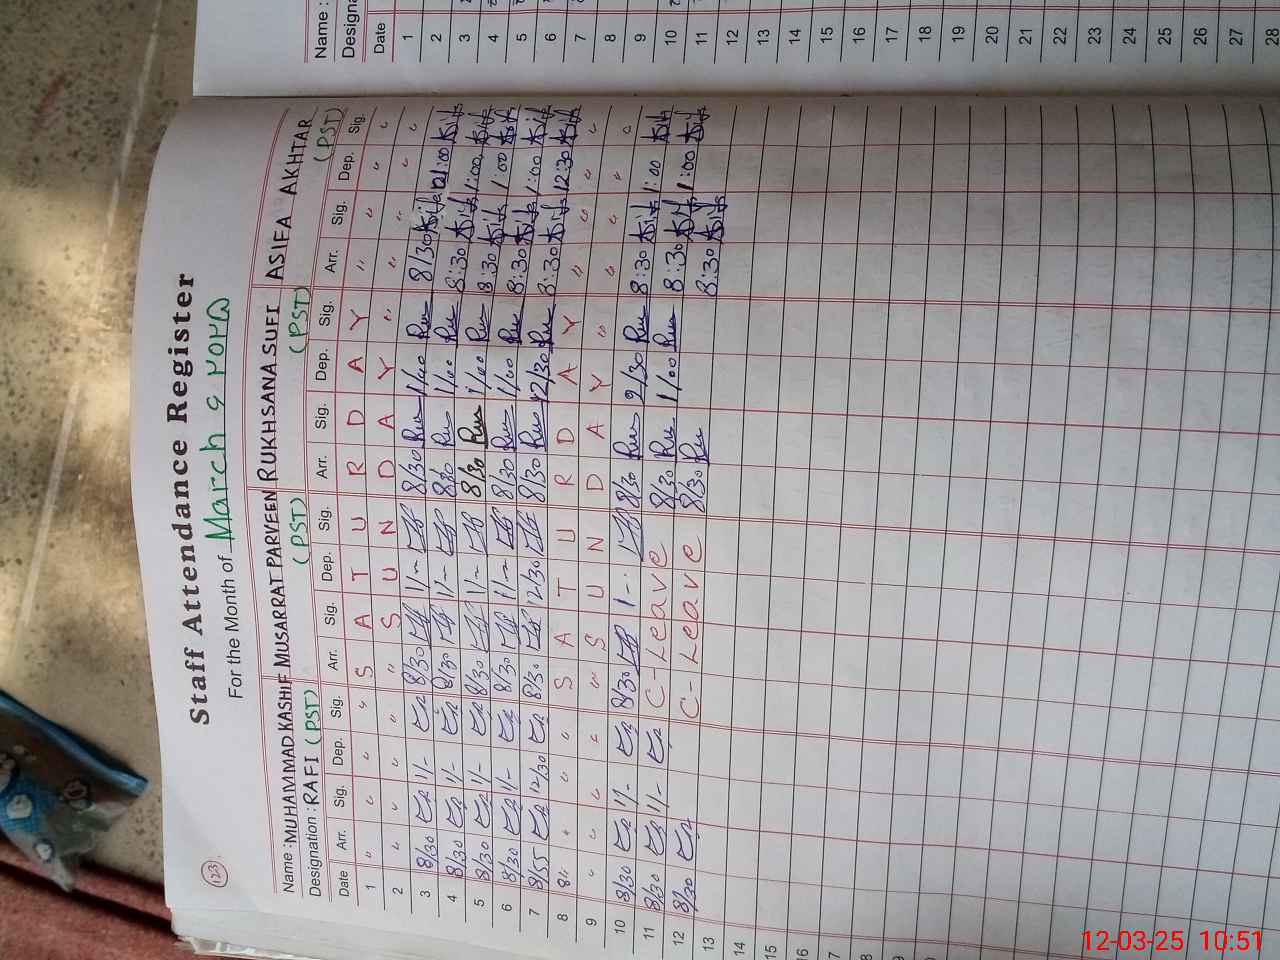 123
Staff Attendance Register
For the Month of March
Name : MUHAMMAD KASHIF MUSARRAT PARVEEN RUKHSANA SUFI ASIFA AKHTAR
Designation : RAFI (PST) (PST) (PST) (PST)
Date Arr. Sig. Dep. Sig. Arr. Sig. Dep. Sig. Arr. Sig. Dep. Sig. Arr. Sig. Dep. Sig.
1 " " " " S A T U R D A Y " " " "
2 " " " " " S U N D A Y " " " " "
3 8/30 1/- 8/30 1/- 8/30 1/00 8/30 1:00
4 8/30 1/- 8/30 1/- 8/30 1/00 8:30 1:00
5 8/30 1/- 8/30 1/- 8/30 1/00 8:30 1:00
6 8/30 1/- 8/30 1/- 8/30 1/00 8:30 1:00
7 8/55 12/30 8/30 12/30 8/30 12/30 8:30 12:30
8 " " " S A T U R D A Y " " " "
9 " " " " " S U N D A Y " " " " "
10 8/30 1/- 8/30 1-. 8/30 2/30 8:30 1:00
11 8/30 1/- C-Leave 8/30 1/00 8:30 1:00
12 8/30 C-Leave 8/30 8:30
13
14
15
16
17
Name :
Designa
Date
1
2
3
4
5
6
7
8
9
10
11
12
13
14
15
16
17
18
19
20
21
22
23
24
25
26
27
28
12-03-25 10:51